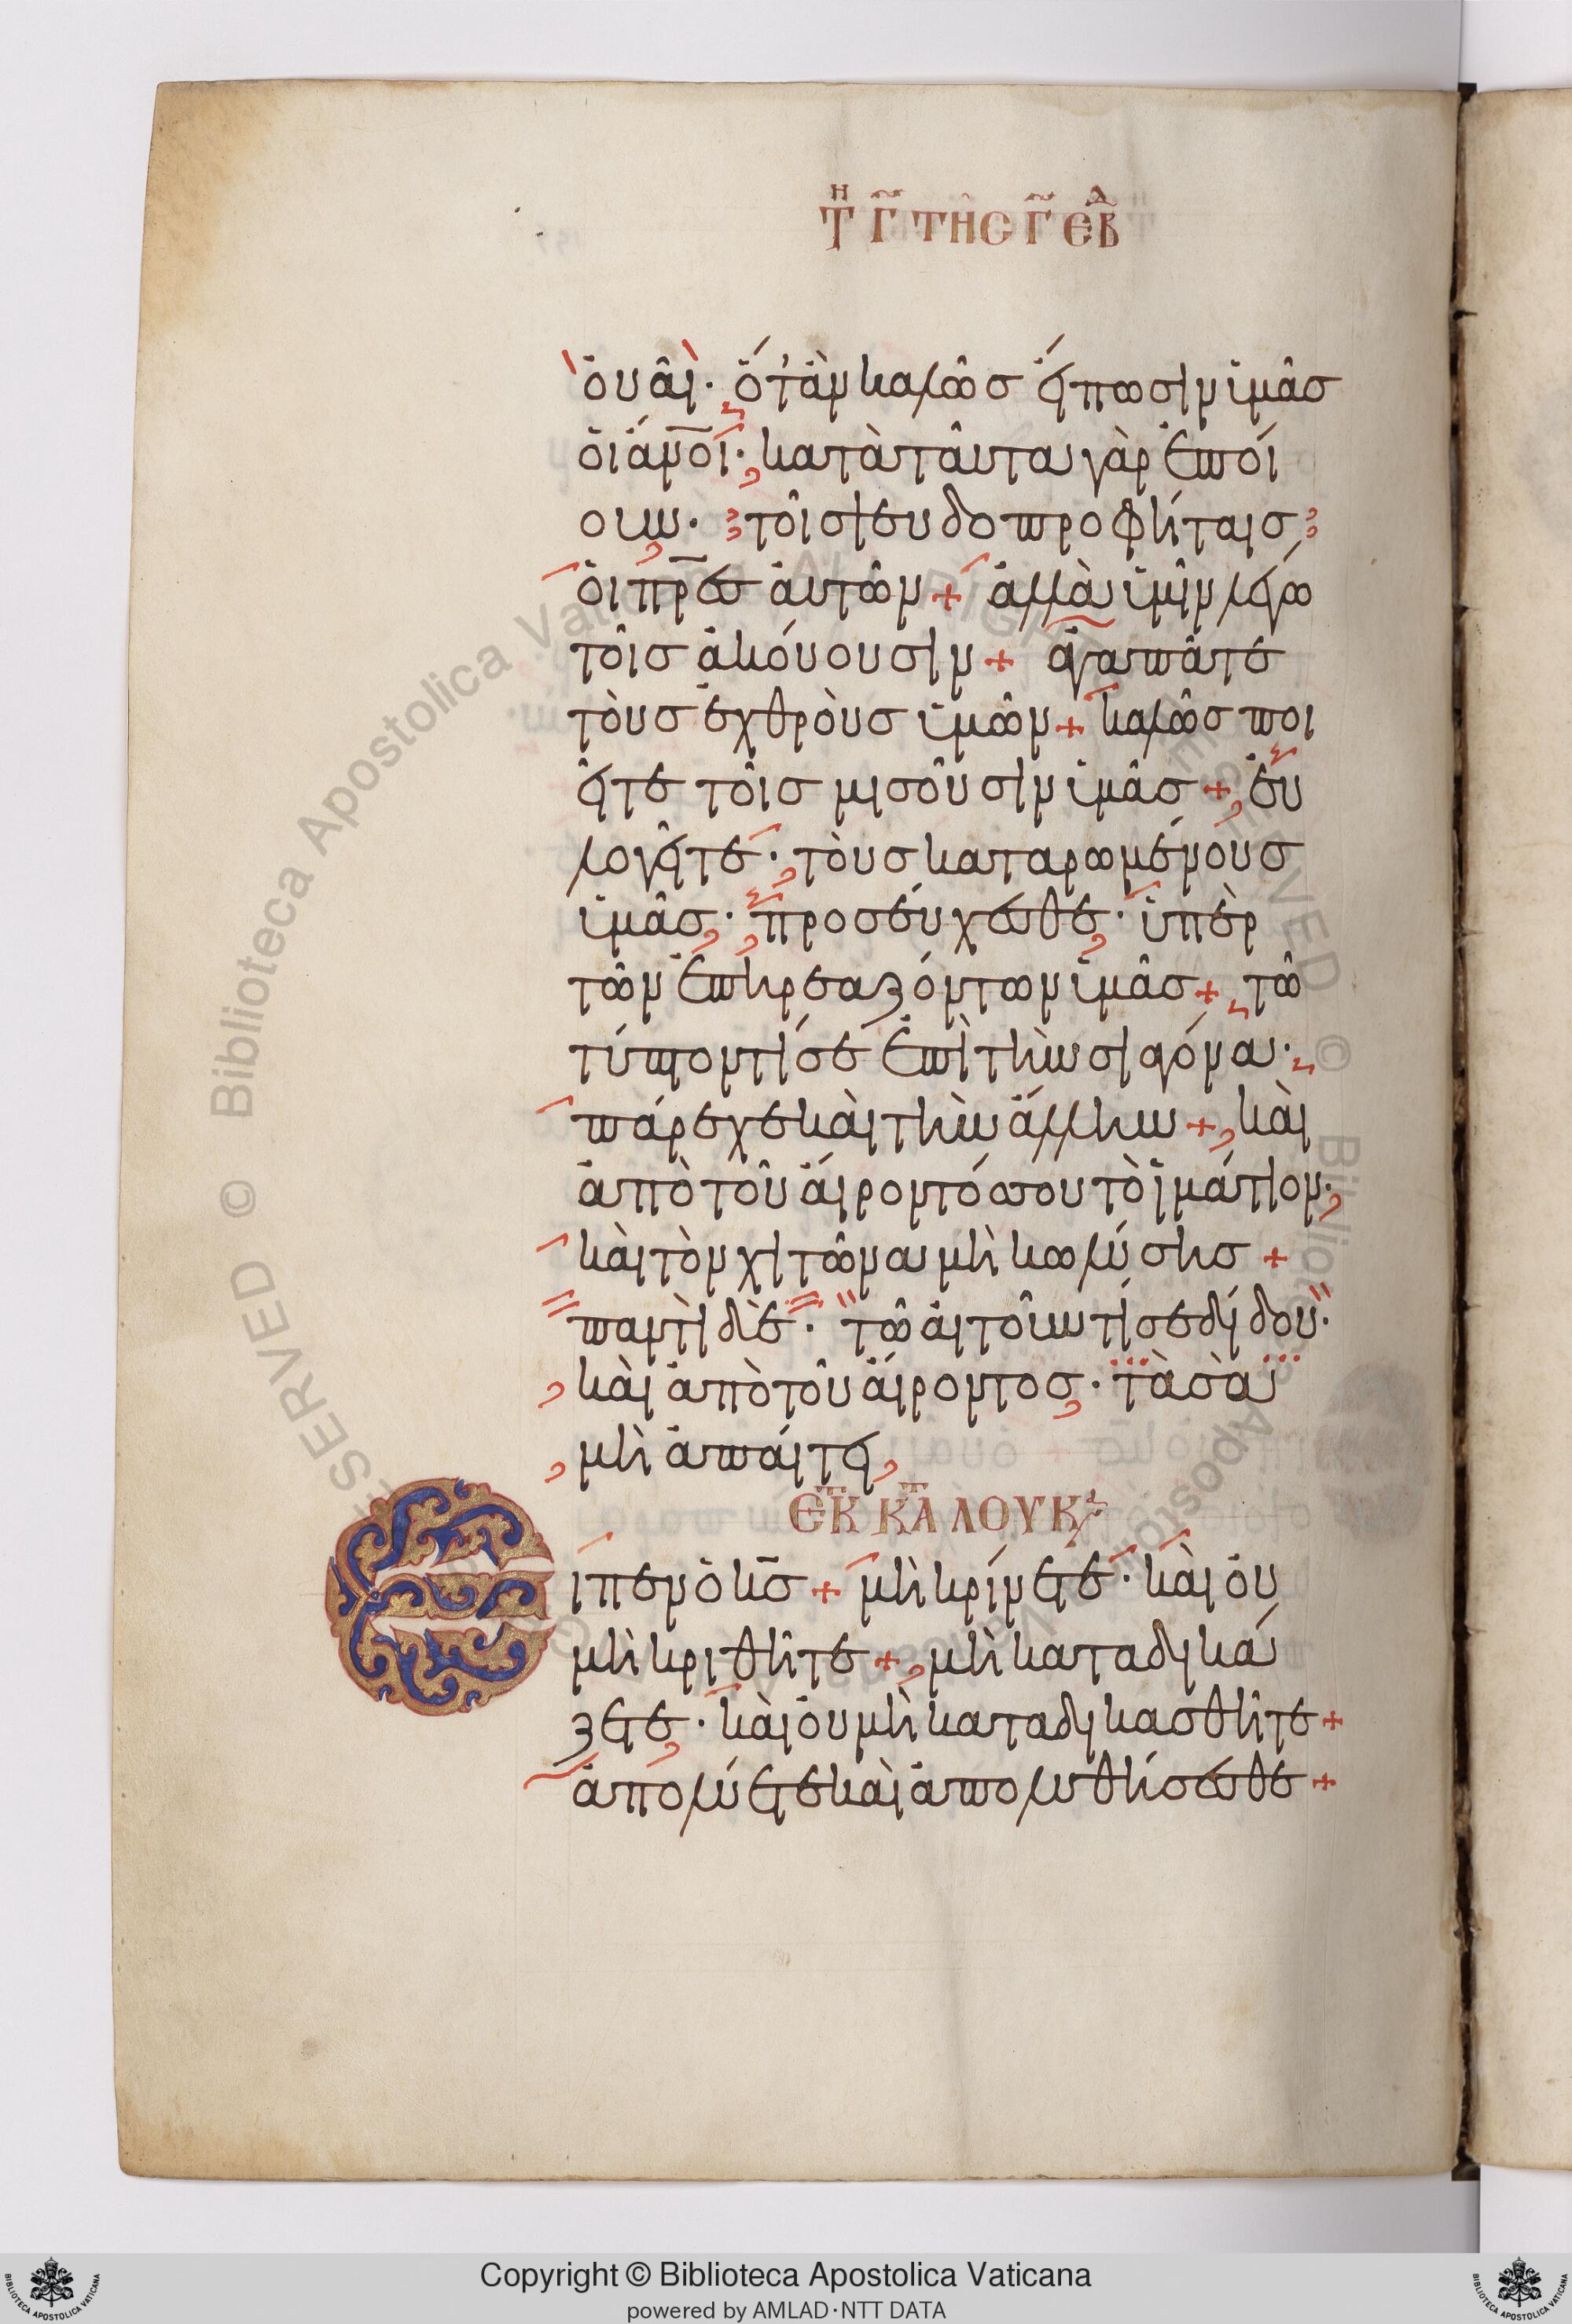 τῇ γ̄ τῆς γ̄ εβδ
ὀυαὶ· ὅταν καλῶσ ἔιπωσιν ὑμᾶσ
ὁι ἄνοι· κατὰ ταῦτα γὰρ ἐποί
ουν· τοῖσ ψευδοπροφήταισ
ὁι πρεσ ἀυτῶν + ἀλλὰ ὑμῖν λέγω
τοῖσ ἀκόυουσιν + ἀγαπᾶτε
τοὺσ ἐχθροὺσ ὑμῶν + καλῶσ ποι
εῖτε τοῖσ μισοῦσιν ὑμᾶσ + ἐυ
λογεῖτε· τοὺσ καταρωμένουσ
ὑμᾶσ· προσέυχεσθε· ὑπὲρ
τῶν ἐπηρεαζόντων ὑμᾶσ + τῶ
τύπτοντί σε ἐπὶ τὴν σιαγόνα·
πάρεχε καὶ τὴν ἄλλην + καὶ
ἀπὸ τοῦ ἄιροντόσ σου τὸ ἱμάτιον·
καὶ τὸν χιτῶνα μὴ κωλύσησ +
παντὶ δὲ· τῶ ἀιτοῦντί σε δίδου·
καὶ ἀπὸ τοῦ ἄιροντοσ· τὰ σὰ
μὴ ἀπάιτει
ἐκ τοῦ κατὰ λουκ
Ειπεν ὁ κσ + μὴ κρίνετε· καὶ ὀυ
μὴ κριθῆτε + μὴ καταδικά
ζετε· καὶ ὀυ μὴ καταδικασθῆτε +
ἀπολύετε καὶ ἀπολυθήσεσθε +
© Biblioteca Apostolica Vaticana
Copyright © Biblioteca Apostolica Vaticana
powered by AMLAD·NTT DATA